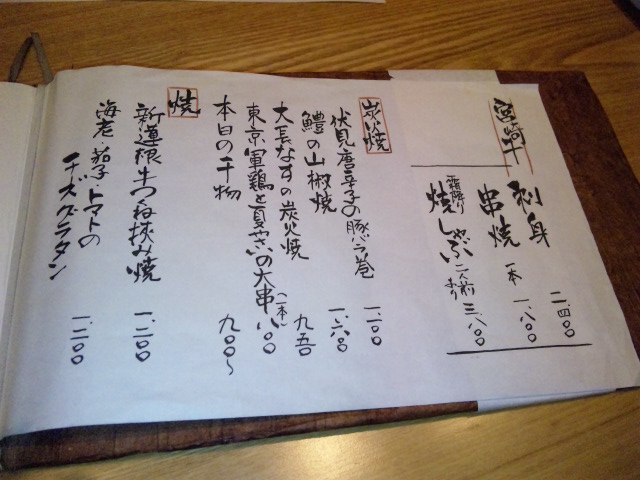 宮崎牛
刺身 二、四〇〇
串焼 一本 一、八〇〇
霜降り 焼しゃぶ 二人前より 三、八〇〇
炭火焼
伏見唐辛子の豚バラ巻 一、一〇〇
鱧の山椒焼 一、六〇〇
大長なすの炭火焼 九五〇
東京軍鶏と夏やさいの大串(一本) 八〇〇
本日の干物 九〇〇〜
焼
新蓮根牛つくね挟み焼 一、二〇〇
海老・茄子・トマトの
チーズグラタン 一、二〇〇